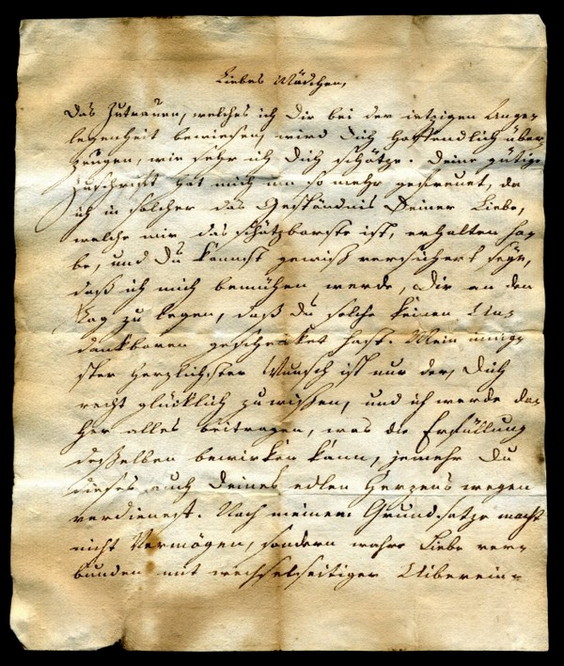 Liebes Mädchen,
Das Zutrauen, welches ich Dir bei der ietzigen Ange-
legenheit bewiesen, wird Dich hoffendlich über-
zeugen, wie sehr ich Dich schätze. Deine gütige
Zuschrift hat mich um so mehr gefreuet, da
ich in solcher das Geständnis Deiner Liebe,
welche mir das schätzbarste ist, erhalten ha-
be, und Du kannst gewiß versichert seyn,
daß ich mich bemühen werde, Dir an den
Tag zu legen, daß du solche keinen Un-
dankbaren geschenket hast. Mein innig-
ster herzlichster Wunsch ist nur der, Dich
recht glücklich zu wißen, und ich werde da-
her alles beitragen, was die Erfüllung
deßelben bewirken kann, jemehr Du
dieses auch Deines edlen Herzens wegen
verdienest. Nach meinem Grundsatze macht
nicht Vermögen, sondern wahre Liebe ver-
bunden mit wechselseitiger Uiberein-